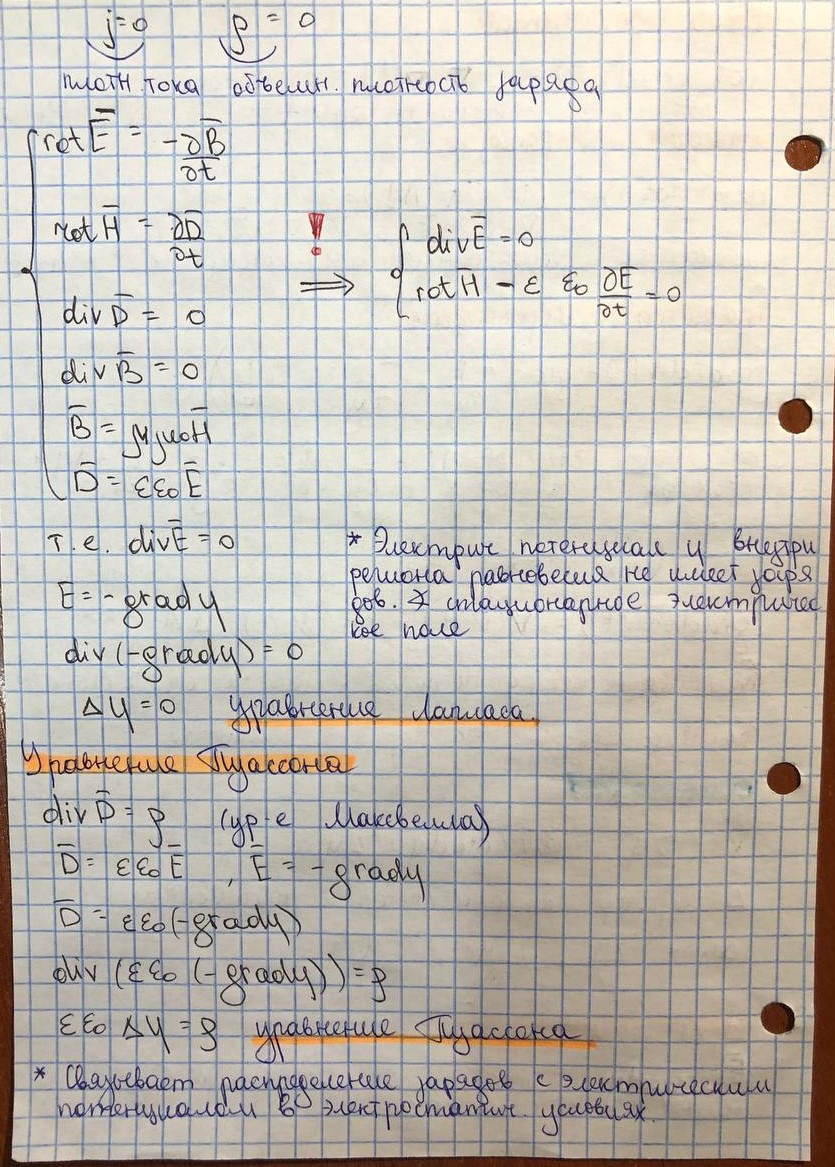 j=0 ρ = 0
плотн. тока объемн. плотность заряда
rot E̅ = -∂B̅/∂t
rot H̅ = ∂D̅/∂t
!
⇒
div E̅ = 0
rot H̅ - ε ε₀ ∂E̅/∂t = 0
div D̅ = 0
div B̅ = 0
B̅ = μμ₀H̅
D̅ = εε₀E̅
т.е. div E̅ = 0
E = - grad φ
div (-grad φ) = 0
Δφ = 0 уравнение Лапласа.
* Электрич потенциал φ внутри
региона равновесия не имеет заря
дов. * стационарное электричес
кое поле
Уравнение Пуассона
div D̅ = ρ (ур-е Максвелла)
D̅ = εε₀E̅ , E̅ = -grad φ
D̅ = εε₀(-grad φ)
div (εε₀ (-grad φ)) = ρ
εε₀ Δφ = ρ уравнение Пуассона
* Связывает распределение зарядов с электрическим
потенциалом в электростатич. условиях.